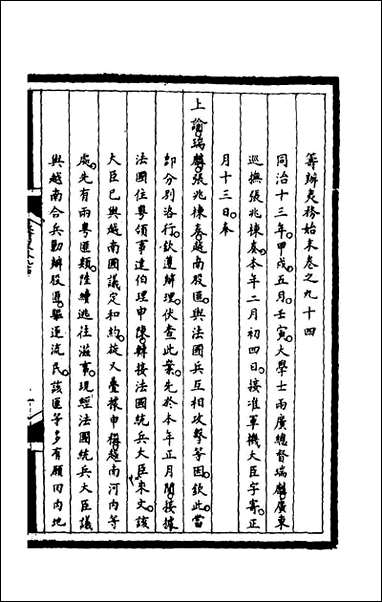 籌辦夷務始末卷之九十四
同治十三年甲戌五月壬寅大學士兩廣總督瑞麟廣東
巡撫張兆棟奏本年二月初四日接准軍機大臣字寄正
月十三日奉
上諭瑞麟張兆棟奏越南股匪與法國兵互相攻擊等因欽此當
即分別洛行欽遵辦理伏查此案先於本年正月閒接據
法國住粵領事達伯理申陳轉接法國統兵大臣來文該
大臣已與越南國議定和約旋又疊據申稱越南河内等
處先有兩粵匪類陸續逃往滋事現經法國統兵大臣議
與越南合兵勦辦股匪驅逐流民該匪等多有願回内地